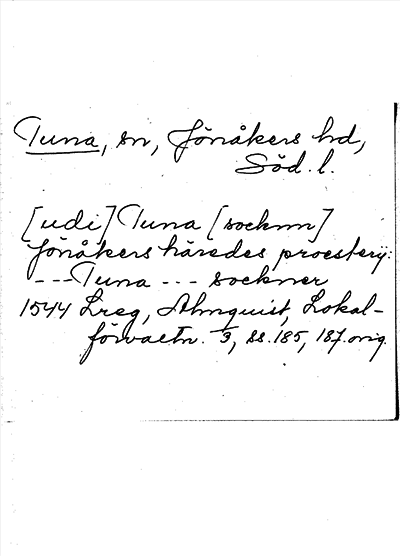 Tuna, sn, Jönåkers hd,
Söd. l.
[udi] Tuna [socknn]
Jönåkers häredes proestery:
--- Tuna --- sockner
1544 Lreg, Almquist, Lokal-
förvaltn. 3, ss. 185, 187. orig.